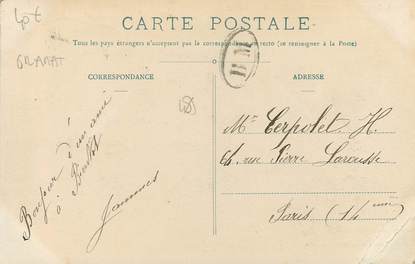 Lot
GRAMAT
CARTE POSTALE
Tous les pays étrangers n'acceptent pas la correspondance au recto (se renseigner à la Poste)
CORRESPONDANCE
ADRESSE
BM
Bonjour d'un ami
à
Jammes
Mr Cerpolet. H.
66, rue Pierre Larousse
Paris (14eme)